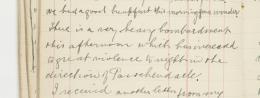 we buy a good
There is a very heavy bombardment
this afternoon which has increased
to great violence to night in the
direction of Passchendaele.
I received another letter from my